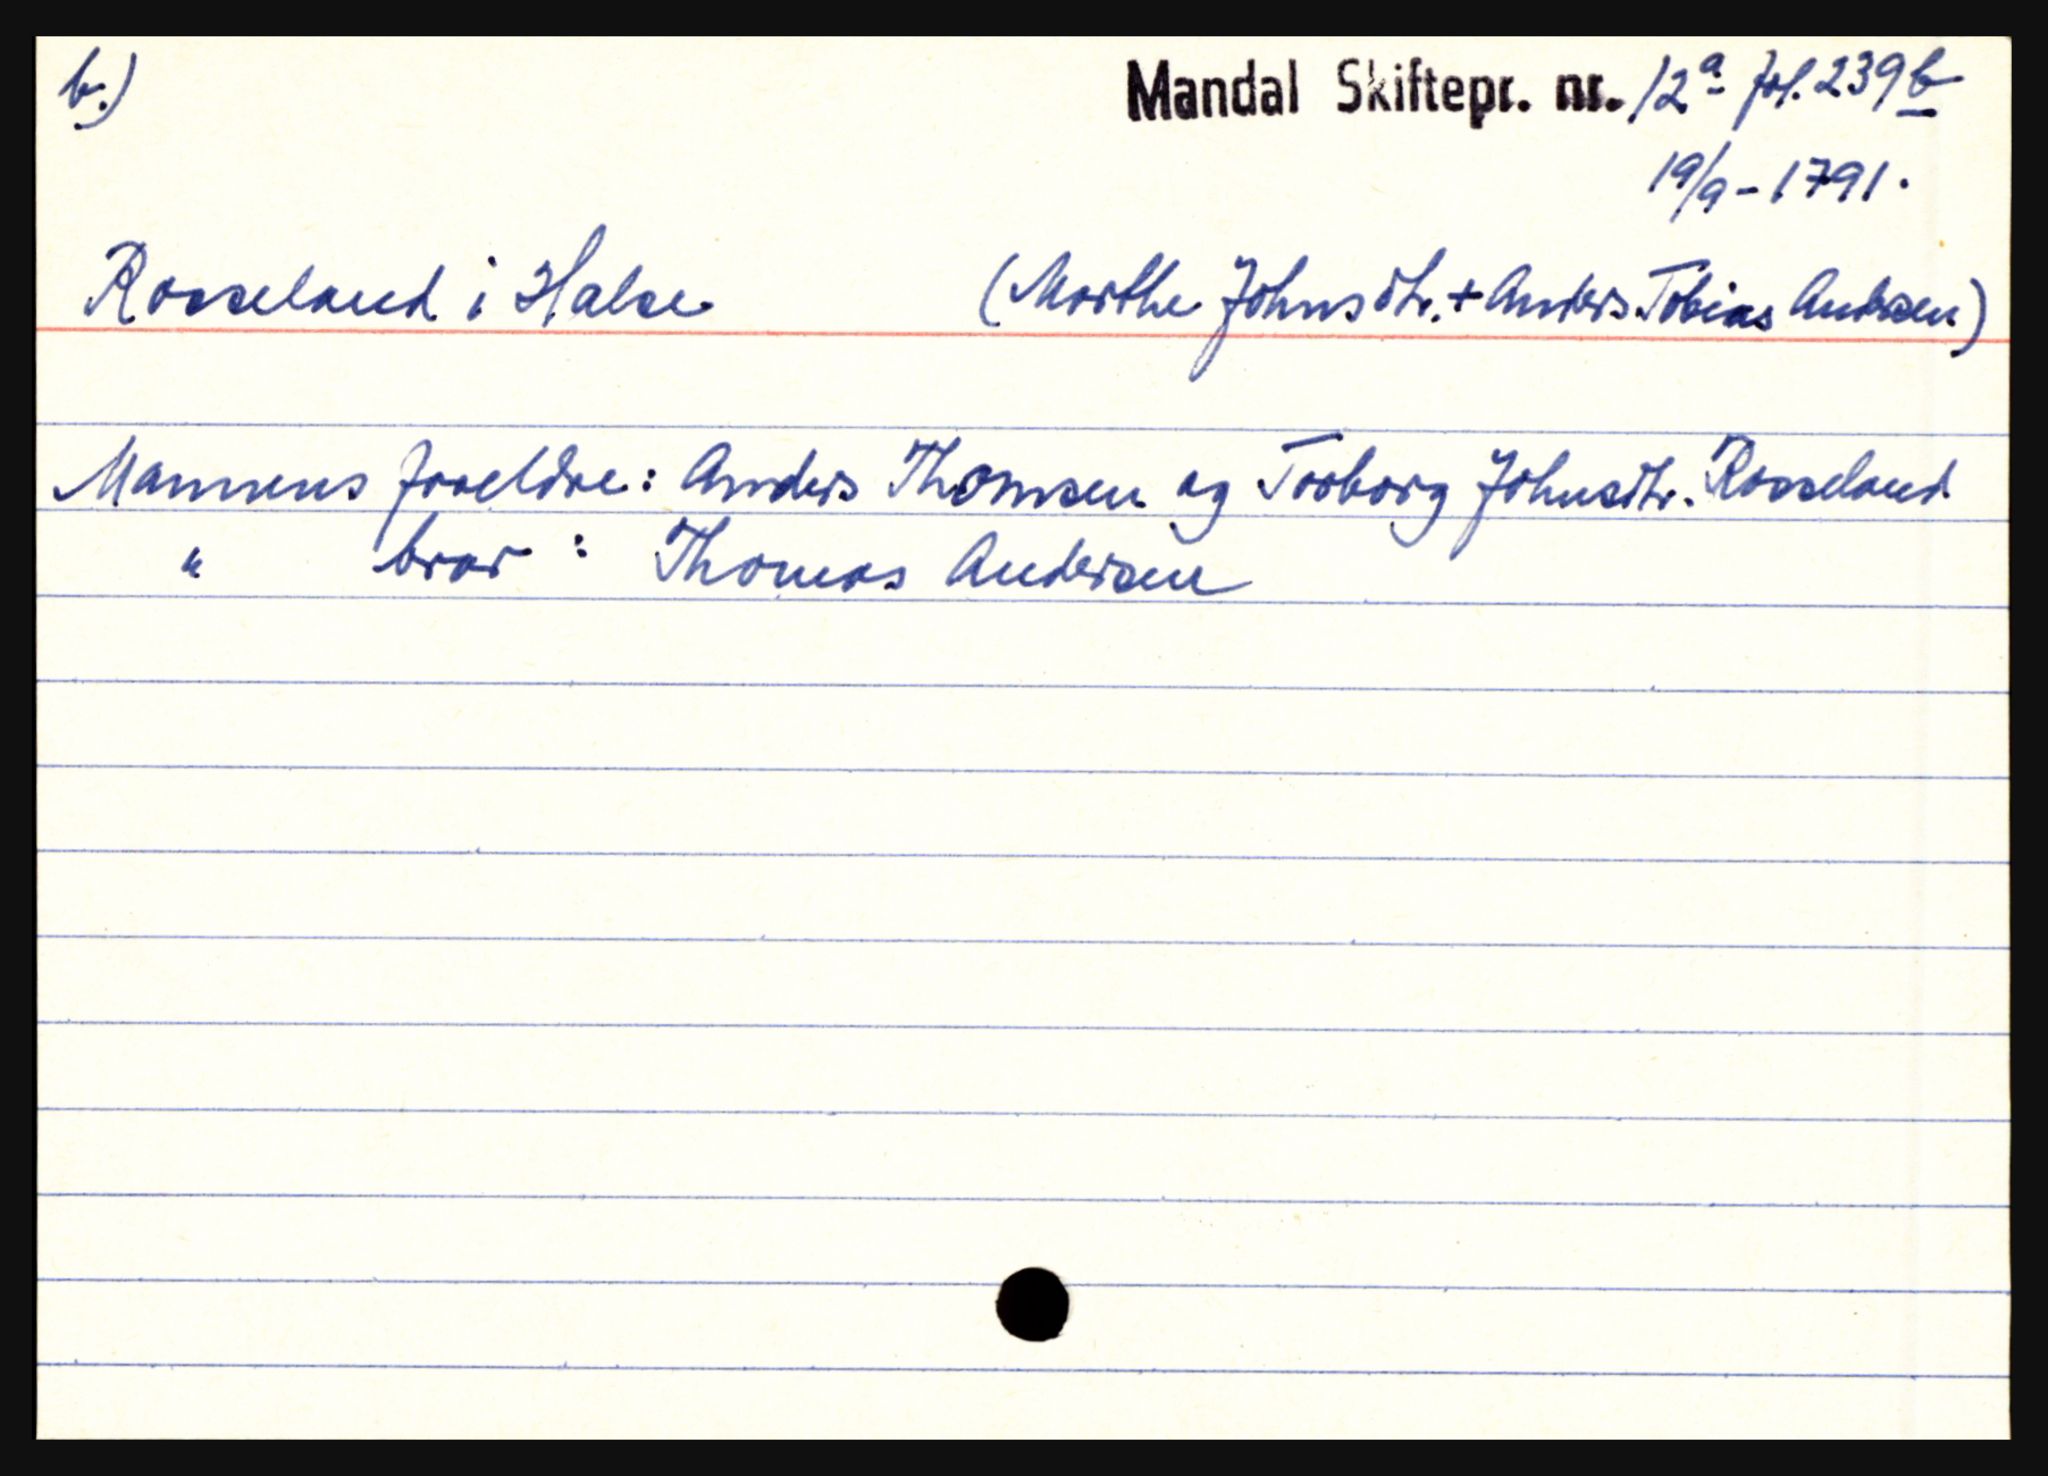 b.)
Mandal Skiftepr. nr. 12a fol. 239b
19/9 - 1791.
Rosseland i Halse (Marthe Johnsdtr. + Anders Tobias Andersen)
Mannens foreldre: Anders Thomsen og Torborg Johnsdtr. Rosseland
" bror : Thomas Andersen